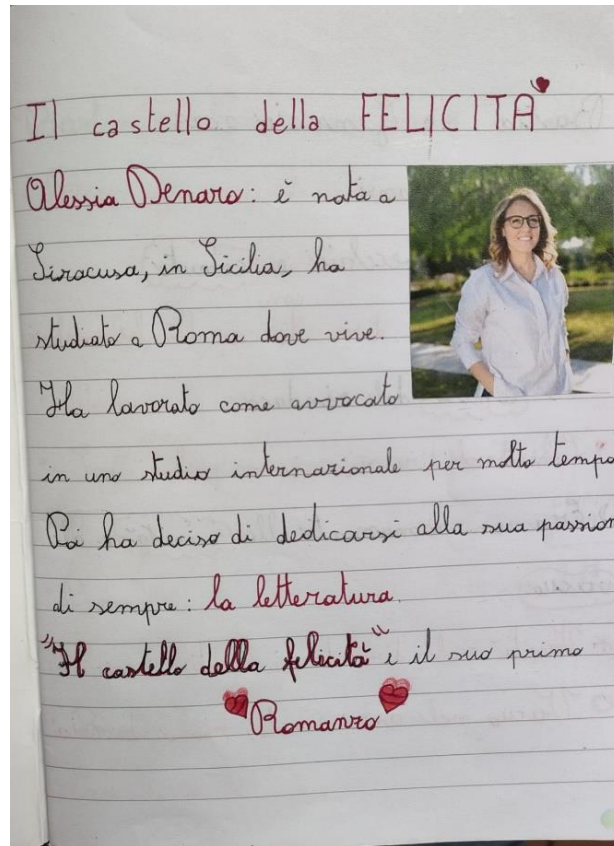 Il castello della FELICITÀ
Alessia Denaro: è nata a
Siracusa, in Sicilia, ha
studiato a Roma dove vive.
Ha lavorato come avvocato
in uno studio internazionale per molto tempo
Poi ha deciso di dedicarsi alla sua passion
di sempre: la letteratura.
"Il castello della felicità" è il suo primo
Romanzo